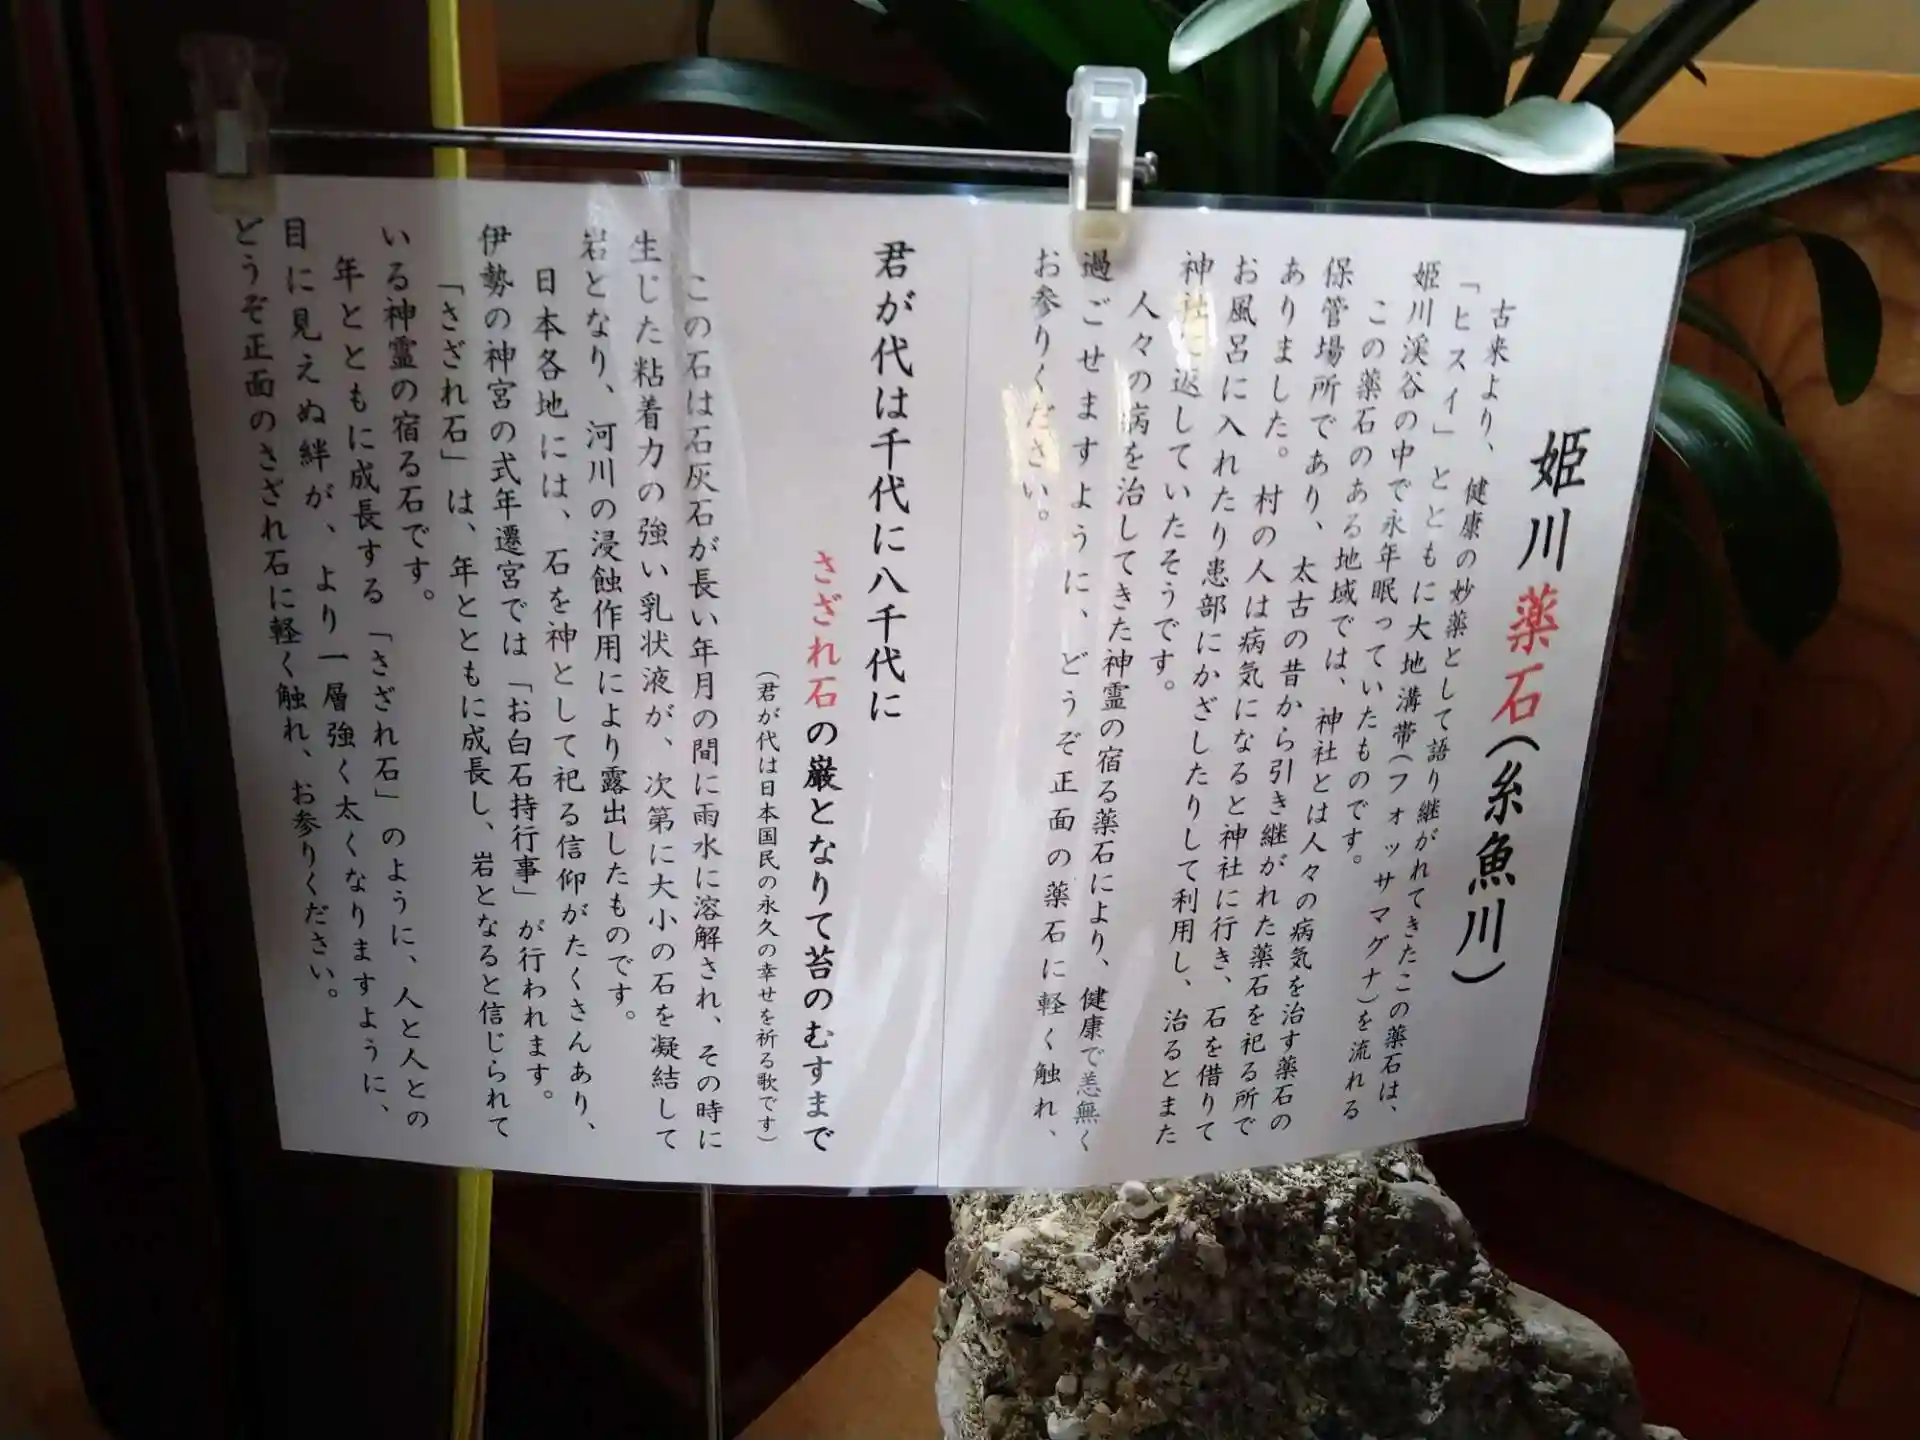 姫川薬石(糸魚川)
古来より、健康の妙薬として語り継がれてきたこの薬石は、
「ヒスイ」とともに大地溝帯(フォッサマグナ)を流れる
姫川渓谷の中で永年眠っていたものです。
この薬石のある地域では、神社とは人々の病気を治す薬石の
保管場所であり、太古の昔から引き継がれた薬石を祀る所で
ありました。村の人は病気になると神社に行き、石を借りて
お風呂に入れたり患部にかざしたりして利用し、治るとまた
神社に返していたそうです。
人々の病を治してきた神霊の宿る薬石により、健康で恙無く
過ごせますように、どうぞ正面の薬石に軽く触れ、
お参りください。
君が代は千代に八千代に
さざれ石の巌となりて苔のむすまで
(君が代は日本国民の永久の幸せを祈る歌です)
この石は石灰石が長い年月の間に雨水に溶解され、その時に
生じた粘着力の強い乳状液が、次第に大小の石を凝結して
岩となり、河川の浸蝕作用により露出したものです。
日本各地には、石を神として祀る信仰がたくさんあり、
伊勢の神宮の式年遷宮では「お白石持行事」が行われます。
「さざれ石」は、年とともに成長し、岩となると信じられて
いる神霊の宿る石です。
年とともに成長する「さざれ石」のように、人と人との
目に見えぬ絆が、より一層強く太くなりますように、
どうぞ正面のさざれ石に軽く触れ、お参りください。